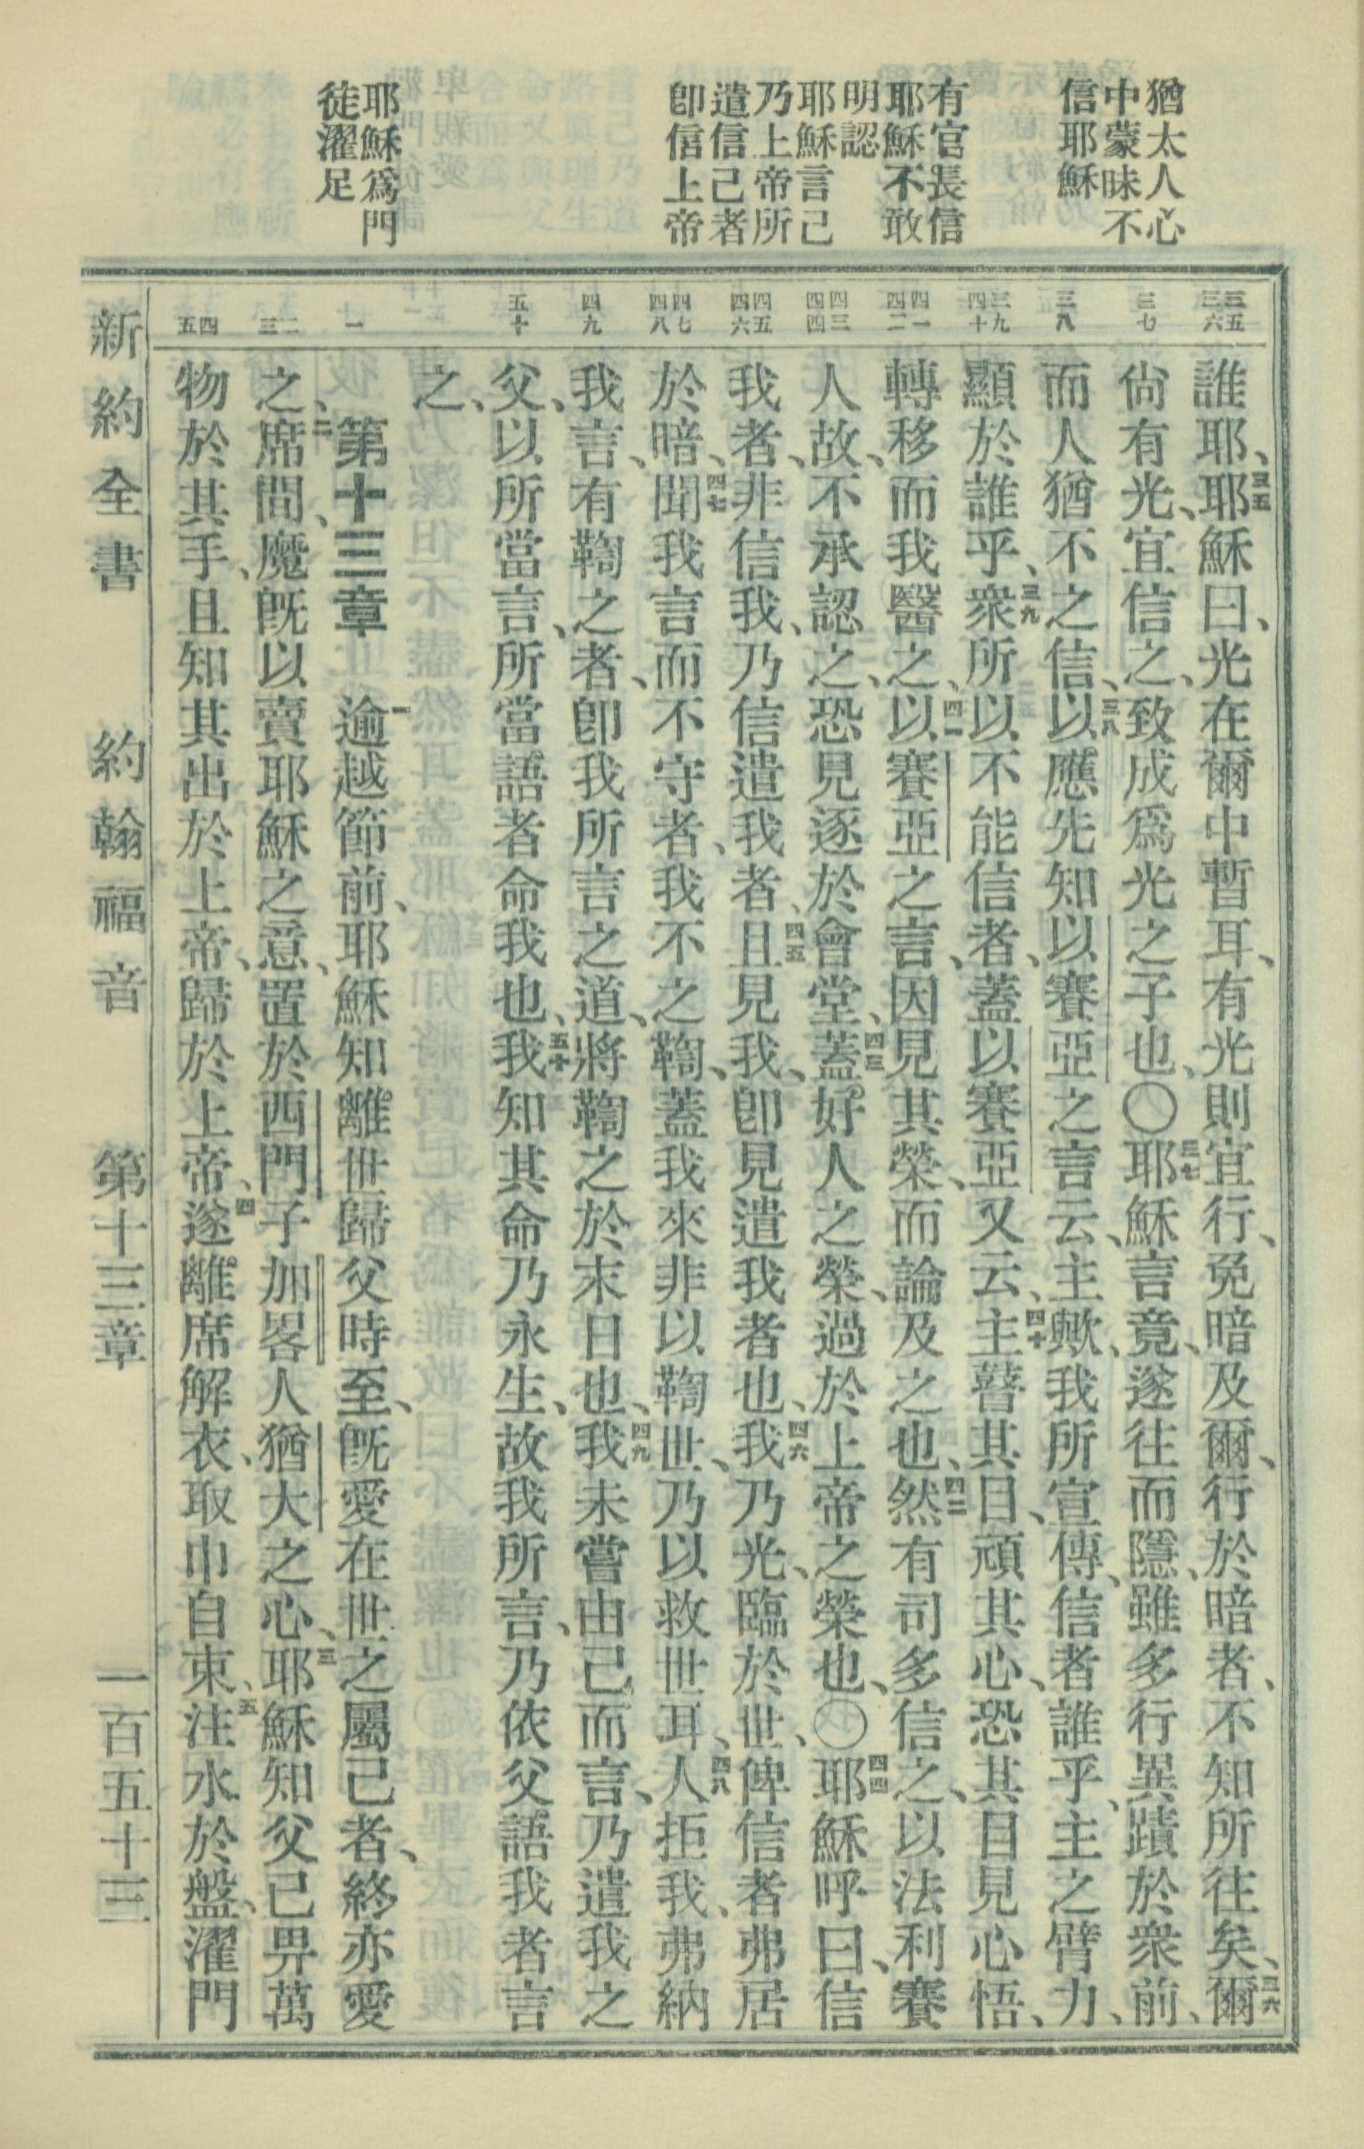 猶太人心
中蒙昧不
信耶穌
有官長信
耶穌不敢
明認
耶穌言己
乃上帝所
遣信己者
卽信上帝
耶穌爲門
徒濯足
三五 三六 三七 三八 三九 四十 四一 四二 四三 四四 四五 四六 四七 四八 四九 五十 一 二 三 四 五
誰耶、三五耶穌曰、光在爾中暫耳、有光則宜行、免暗及爾、行於暗者、不知所往矣、三六爾
尙有光、宜信之、致成爲光之子也、〇三七耶穌言竟、遂往而隱、雖多行異蹟於衆前、
而人猶不之信、三八以應先知以賽亞之言云、主歟、我所宣傳、信者誰乎、主之臂力、
顯於誰乎、三九衆所以不能信者、蓋以賽亞又云、四十主瞽其目、頑其心、恐其目見心悟、
轉移而我醫之、四一以賽亞之言、因見其榮、而論及之也、四二然有司多信之、以法利賽
人故、不承認之、恐見逐於會堂、四三蓋好人之榮、過於上帝之榮也、〇四四耶穌呼曰、信
我者、非信我、乃信遣我者、四五且見我、卽見遣我者也、四六我乃光、臨於世、俾信者弗居
於暗、四七聞我言而不守者、我不之鞫、蓋我來非以鞫世、乃以救世耳、四八人拒我、弗納
我言、有鞫之者、卽我所言之道、將鞫之於末日也、四九我未嘗由己而言、乃遣我之
父、以所當言、所當語者命我也、五十我知其命乃永生、故我所言、乃依父語我者言
之、
第十三章 一逾越節前、耶穌知離世歸父時至、旣愛在世之屬己者、終亦愛
之、二席間、魔旣以賣耶穌之意、置於西門子加畧人猶大之心、三耶穌知父已畀萬
物於其手、且知其出於上帝、歸於上帝、四遂離席解衣、取巾自束、五注水於盤、濯門
新約全書 約翰福音 第十三章 一百五十三